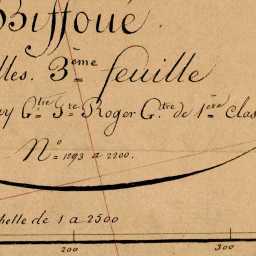 Biffoué.
lles. 3ème feuille
ey Gtre Sre Roger Gtre de 1ère Clas
No = 1293 a 2200.
helle de 1 a 2500
200 300